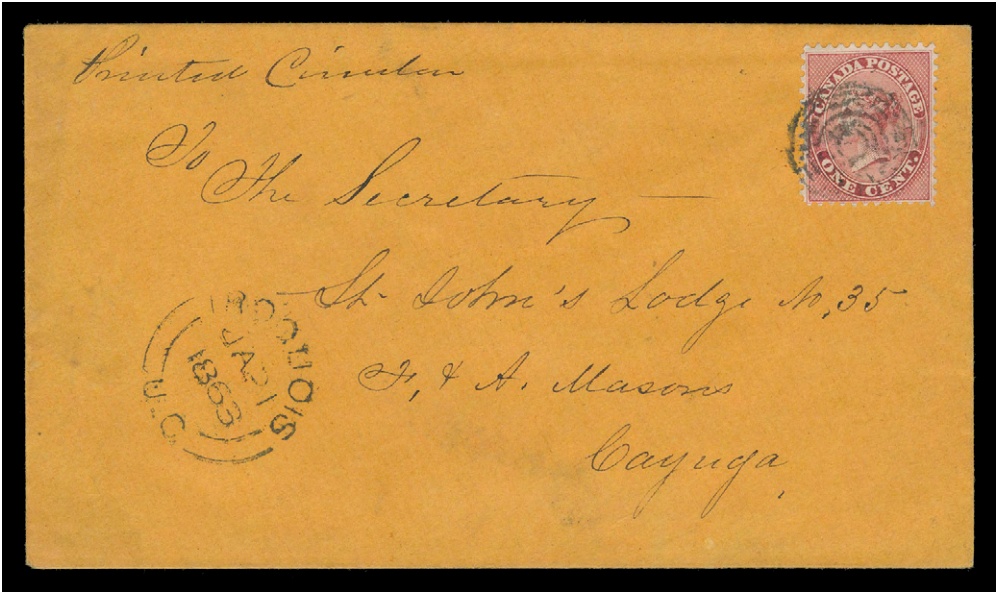 Printed Circular
CANADA POSTAGE
ONE CENT.
To
The Secretary
St. John's Lodge No, 35
F, & A. Masons
Cayuga,
IROQUOIS
JA 21
1863
U.C